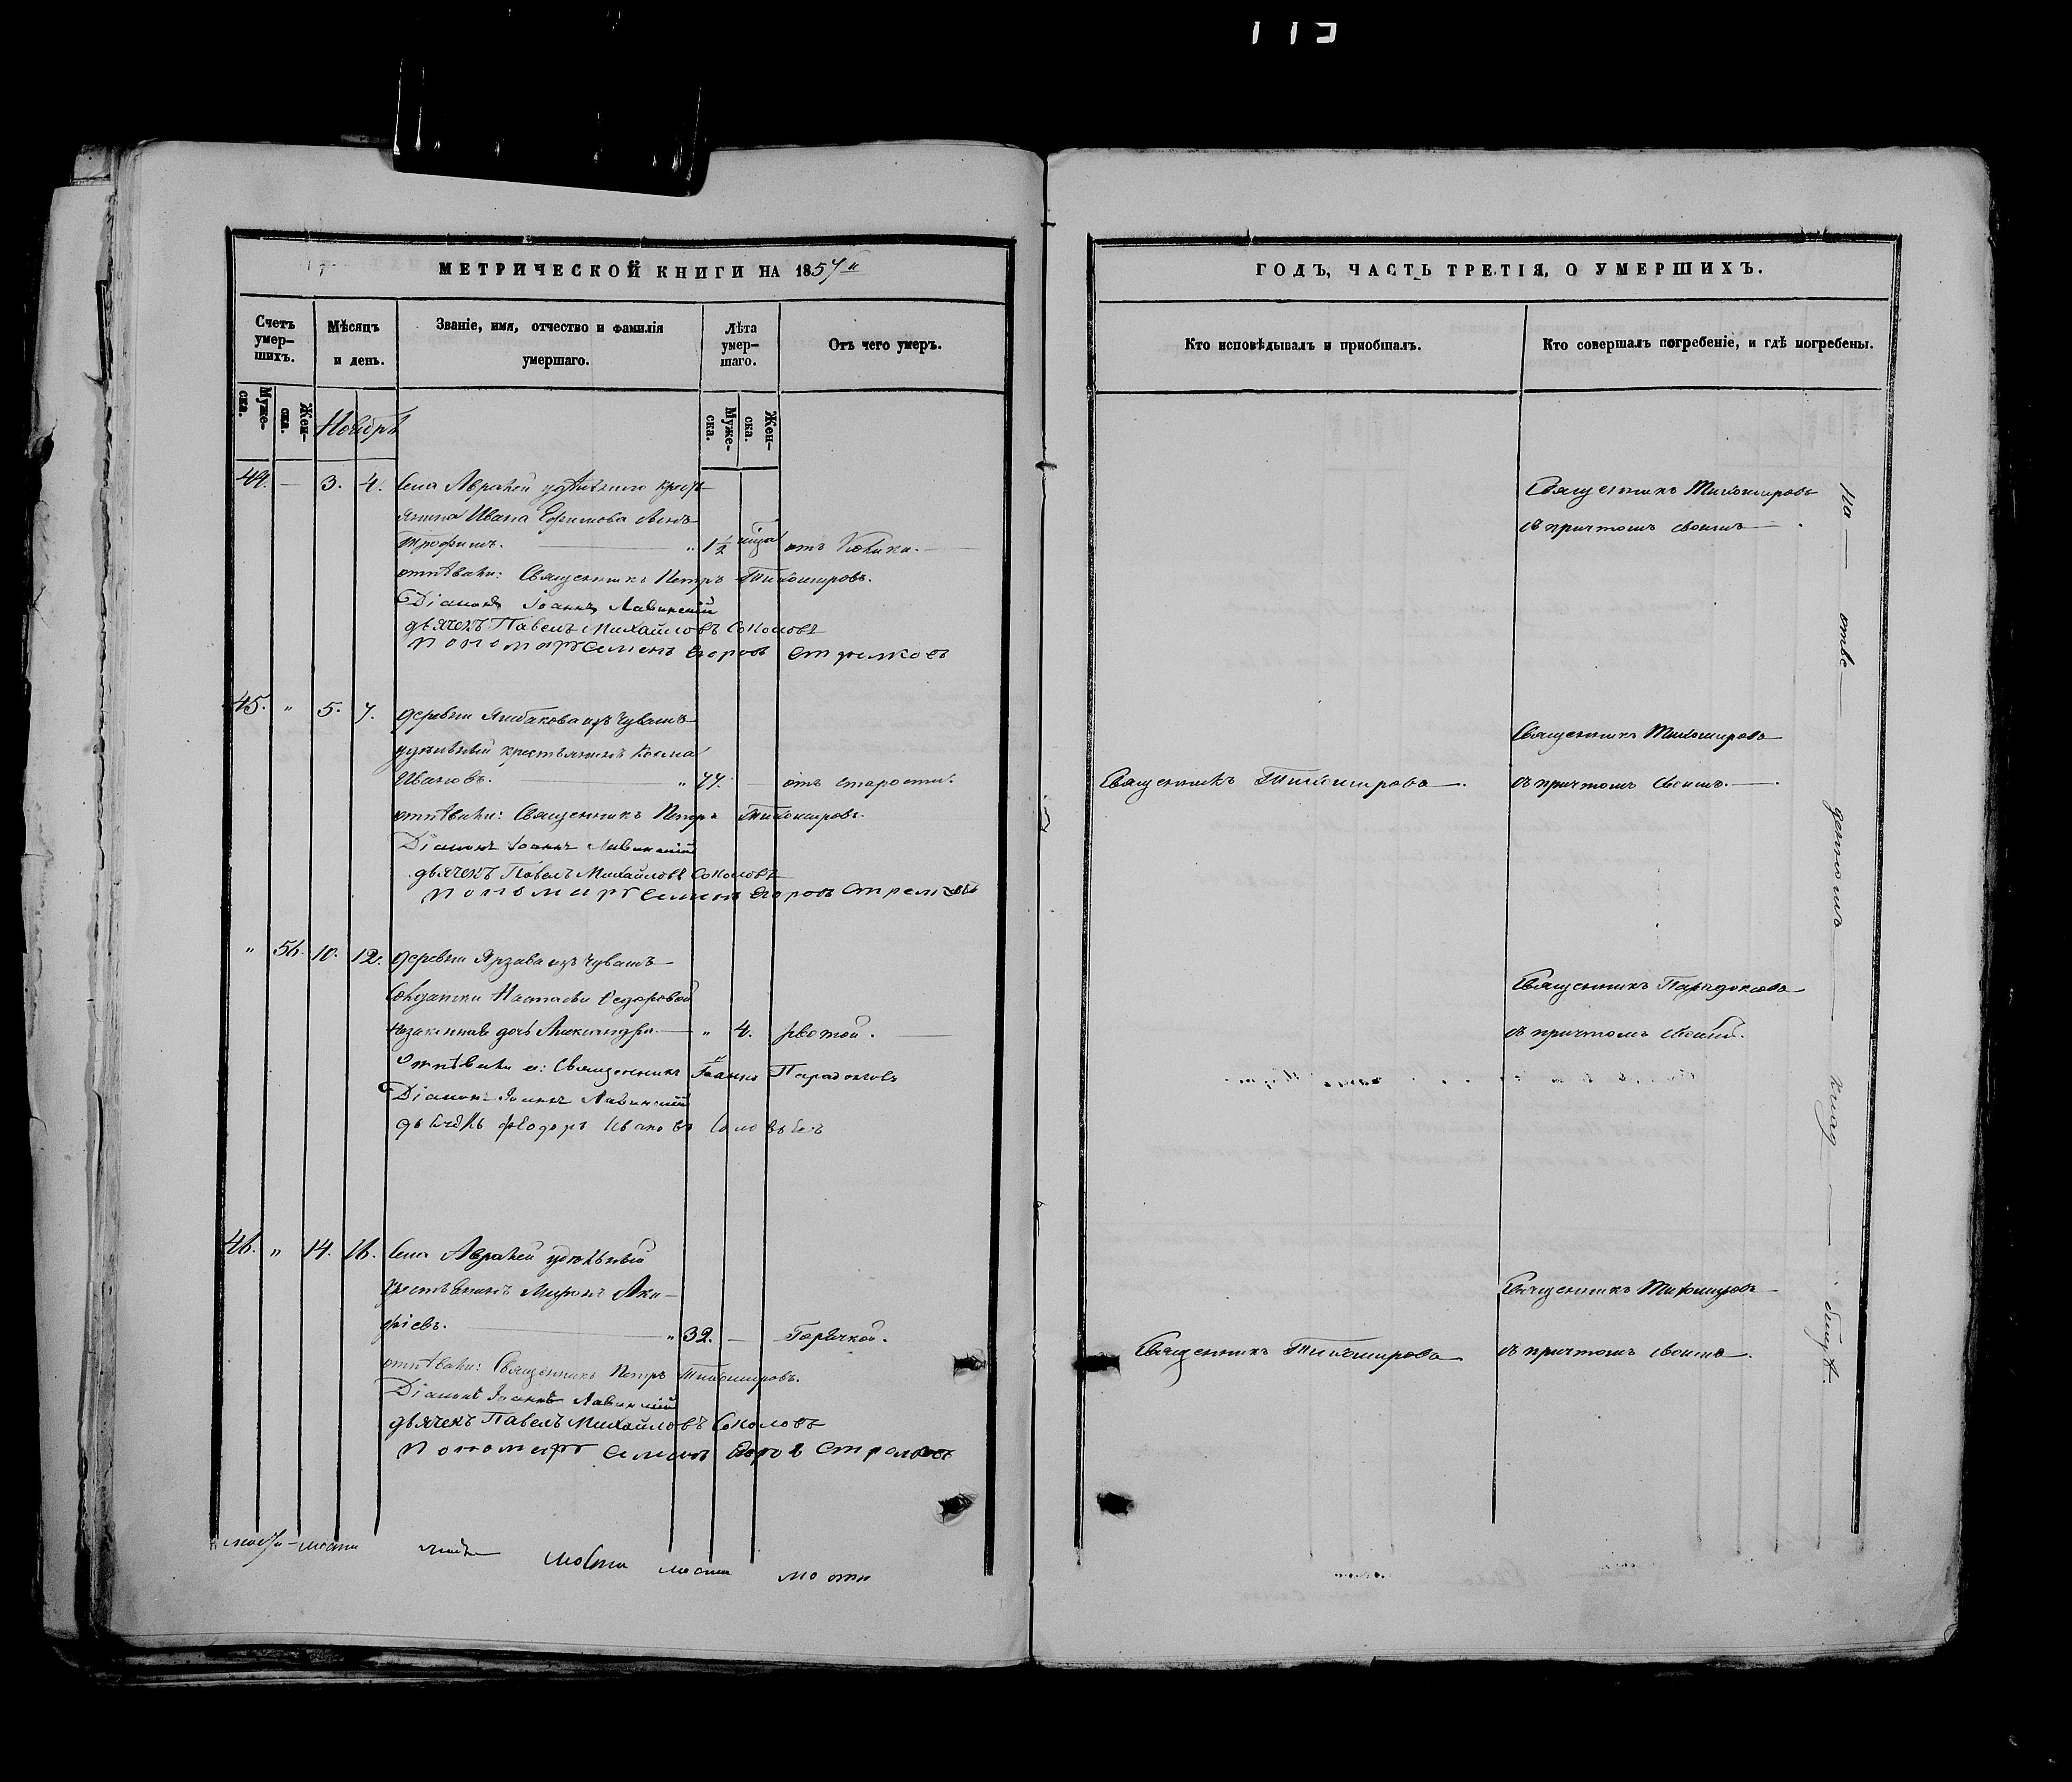 МЕТРИЧЕСКОЙ КНИГИ НА 1857й
Счетъ умер-шихъ.
Мѣсяцъ и день.
Званіе, имя, отчество и фамилія умершаго.
Лѣта умер-шаго.
Отъ чего умеръ.
Муже-ска.
Жен-ска.
Ноябрь
Муже-ска.
Жен-ска.
44. — 3. 4. Села Авралей удѣльнаго кресть-
янина Ивана Ефимова сынъ
Трофимъ. — " 1½ отъ
отпѣвали: Священникъ Петръ Тихомировъ.
Діаконъ Іоаннъ Лавинскій
дьячекъ Павелъ Михайловъ Соколовъ
Пономарь Семенъ Егоровъ Стрелковъ
45. " 5. 7. деревни изъ Чувашъ
удѣльный крестьянинъ Косма
Ивановъ. — " 77. — отъ старости.
отпѣвали: Священникъ Петръ Тихомировъ.
Діаконъ Іоаннъ Лавинскій
дьячекъ Павелъ Михайловъ Соколовъ
Пономарь Семенъ Егоровъ Стрелковъ
" 56. 10. 12. деревни изъ Чувашъ
Солдатки Настасьи Ѳедоровой
незаконная дочь Александра. — " 4. рвотой. —
Отпѣвали ея: Священникъ Іоаннъ Парадоксовъ
Діаконъ Іоаннъ Лавинскій
дьячекъ Феодоръ Ивановъ Соловьевъ
46. " 14. 16. Села Авралей удѣльный
крестьянинъ Миронъ Аки-
фіевъ. — " 32. — Горячкой.
отпѣвали: Священникъ Петръ Тихомировъ.
Діаконъ Іоаннъ Лавинскій
дьячекъ Павелъ Михайловъ Соколовъ
Пономарь Семенъ Егоровъ Стрелковъ
ГОДЪ, ЧАСТЬ ТРЕТІЯ, О УМЕРШИХЪ.
Кто исповѣдывалъ и пріобщалъ.
Кто совершалъ погребеніе, и гдѣ погребены.
Священникъ Тихомировъ
съ причтомъ своимъ —
Священникъ Тихомировъ
Священникъ Тихомировъ —. съ причтомъ своимъ. —
Священникъ Парадоксовъ
съ причтомъ своимъ.
Священникъ Тихомировъ
Священникъ Тихомировъ съ причтомъ своимъ.
На — отве — денномъ — клад — бищѣ.